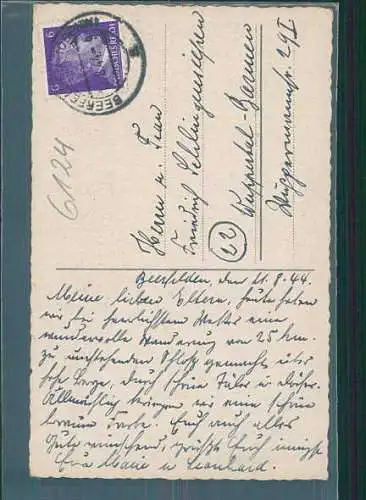 DEUTSCHES REICH
6
6
BEERFE
6124
Herrn u. Frau
Friedrich Schlingensiepen
(22) Wuppertal-Barmen
Wuppermannstr. 29 I
Beerfelden, den 11.8.44.
Meine lieben Eltern, heute haben
wir bei herrlichstem Wetter eine
wundervolle Wanderung von 25 km.
zu umstehendem Schloß gemacht, über
hohe Berge, durch schöne Täler u. Dörfer.
Allmählich kriegen wir eine schöne
braune Farbe. Euch auch alles
Gute wünschend, grüßt Euch innigst
Eva Marie u. Leonhard.